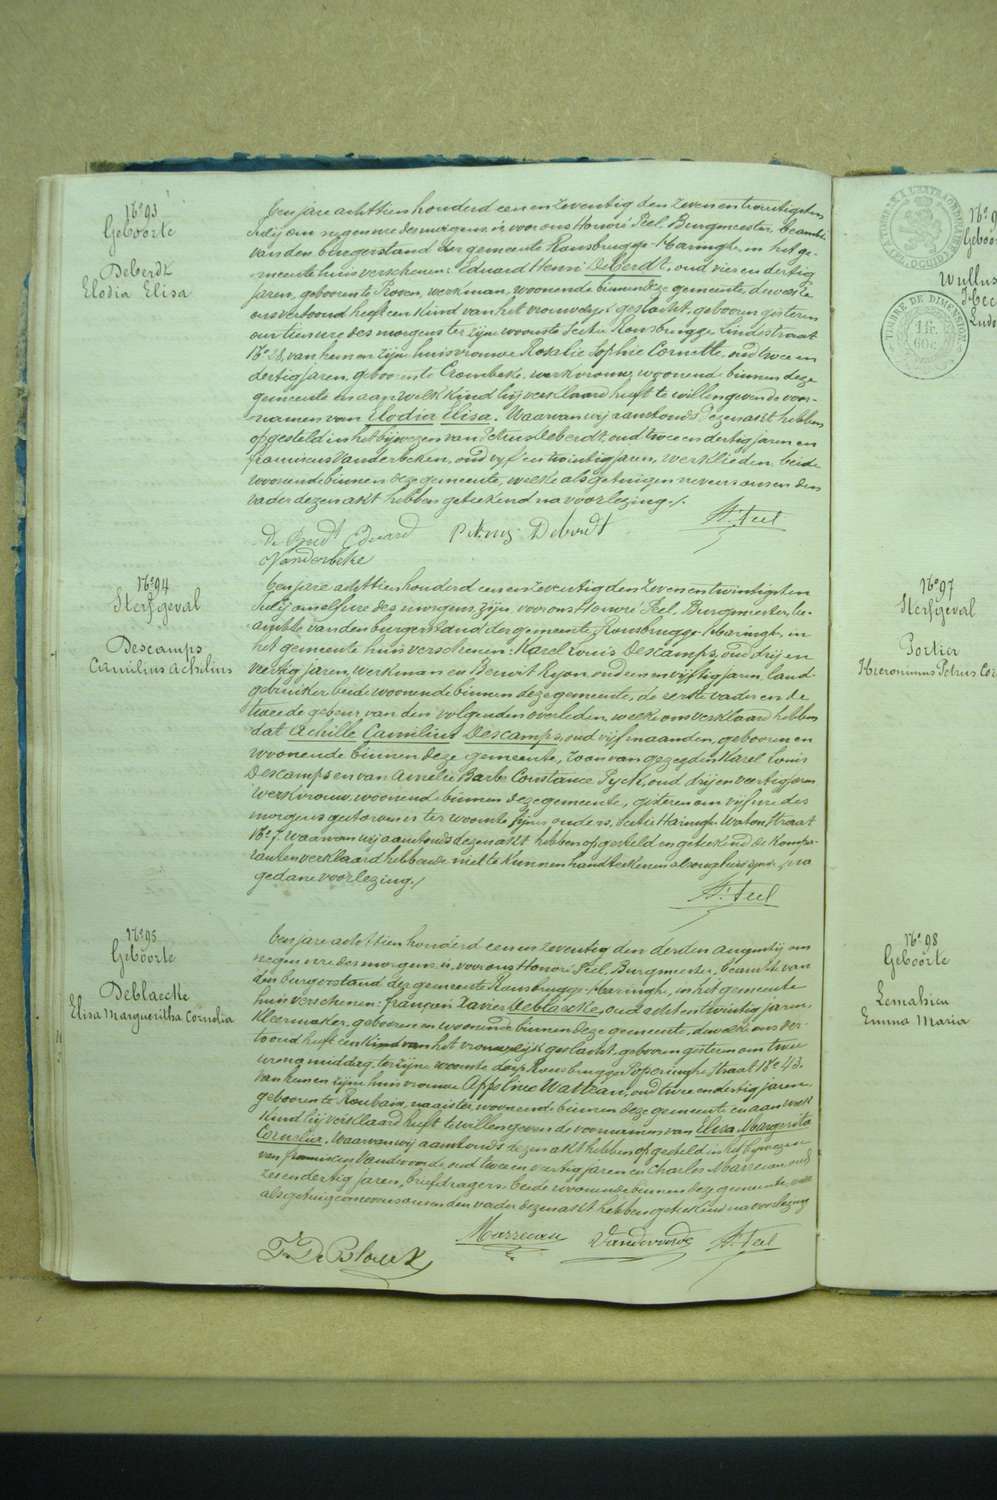 N.o 93
Geboorte
Deberdt
Elodia Elisa
Een jare achttien honderd een en zeventig den zeven en twintigsten
July om negen ure des morgens is voor ons Honoré Peel, Burgmeester, beambte
van den burgerstand der gemeente Rousbrugge-Haringhe, in het ge-
meente huis verschenen: Eduard Henri Deberdt, oud vier en dertig
jaren, geboren te Proven, werkman, woonende binnen deze gemeente, dewelke
ons vertoond heeft een kind van het vrouwelyk geslacht, geboren gisteren
om tien ure des morgens ter zyne woonste sectie Rousbrugge Lindestraat
N.o 28, van hem en zyne huisvrouwe Rosalie Sophie Cornette, oud twee en
dertig jaren, geboren te Crombeke, werkvrouw, woonende binnen deze
gemeente en aan welk kind hij verklaard heeft te willen geven de voor-
namen van Elodia Elisa. Waarvan wij aanstonds dezen akt hebben
opgesteld in het bijwezen van Petrus Deberdt, oud twee en dertig jaren en
franciscus Vanderbeken, oud vyf en twintig jaren, werklieden, beide
woonende binnen deze gemeente, welke als getuigen nevens ons en den
vader dezen akt hebben geteekend na voorlezing./.
H. Peel
De Berdt Eduard Petrus Deberdt
Vanderbeke
N.o 94
Sterfgeval
Descamps
Camilius Achilius
Een jare achttien honderd een en zeventig den zeven en twintigsten
July om elf ure des morgens, zijn voor ons Honoré Peel, Burgmeester, be-
ambte van den burgerstand der gemeente Rousbrugge-Haringhe, in
het gemeente huis verschenen: Karel Louis Descamps, oud drij en
veertig jaren, werkman en Benoit Ryon oud een en vijftig jaren, land-
gebruiker beide woonende binnen deze gemeente, de eerste vader en de
tweede gebeur van den volgenden overleden, welke ons verklaard hebben
dat Achille Camilius Descamps, oud vijf maanden, geboren en
woonende binnen deze gemeente, zoon van gezegden Karel Louis
Descamps en van Amelie Barbe Constance Pyck, oud drij en veertig jaren
werkvrouw, woonende binnen deze gemeente, gisteren om vijf ure des
morgens gestorven is ter woonste zijner ouders, Sectie Haringhe Watou straat
N.o 7. Waarvan wij aanstonds dezen akt hebben opgesteld en geteekend de kompa-
ranten verklaard hebbende niet te kunnen handteekenen als ongeleerd zynde, na
gedane voorlezing./
H. Peel
N.o 95
Geboorte
Deblaecke
Elisa Margueritha Cornelia
Een jare achttien honderd een en zeventig den derden Augusty om
negen ure des morgens is, voor ons Honoré Peel, Burgmeester, beambte van
den burgerstand der gemeente Rousbrugge-Haringhe, in het gemeente
huis verschenen: françois Xavier Deblaecke, oud acht en twintig jaren
kleermaker, geboren en woonende binnen deze gemeente, dewelke ons ver-
toond heeft een kind van het vrouwelyk geslacht, geboren gisteren om twee
uren namiddag, ter zijne woonste dorp Rousbrugge Poperinghe Straat N.o 43.
van hem en zijne huisvrouwe Appoline Watteau, oud twee en dertig jaren,
geboren te Roubaix, naaister, woonende binnen deze gemeente en aan welk
kind hij verklaard heeft te willen geven de voornamen van Elisa Margarita
Cornelia. Waarvan wij aanstonds dezen akt hebben opgesteld in het bijwezen
van franciscus Vandevoorde, oud twee en veertig jaren en Charles Marreeuw oud
zes en dertig jaren, briefdragers beide woonende binnen deze gemeente, welke
als getuigen nevens ons en den vader dezen akt hebben geteekend na voorlezing
Marreeuw Vandevoorde H. Peel
F. De Blaeck
TIMBRE DE DIMENSION
N.o 97
Sterfgeval
Portier
Hieronimus Petrus Cor
N.o 98
Geboorte
Lemahieu
Emma Maria